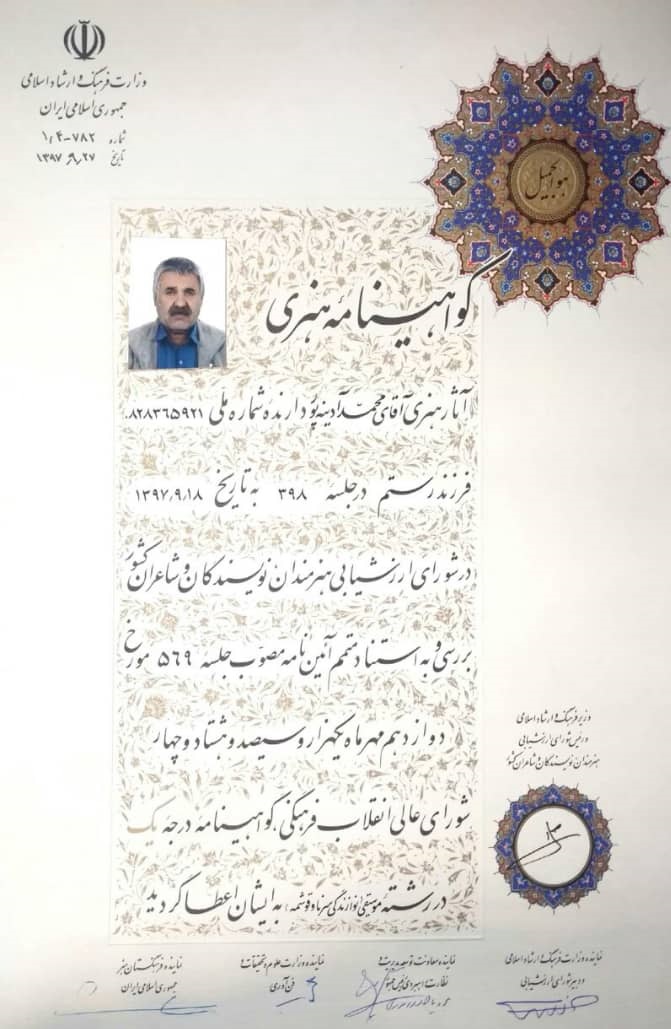 وزارت فرهنگ و ارشاد اسلامی
جمهوری اسلامی ایران
شماره ۱۰۴-۷۸۲
تاریخ ۱۳۹۷/۹/۲۷
هو الجمیل
گواهینامه هنری
آثار هنری آقای محمد آدینه پور دارنده شماره ملی ۰۸۲۸۳۶۵۹۲۱
فرزند رستم در جلسه ۳۹۸ به تاریخ ۱۳۹۷٫۹٫۱۸
در شورای ارزشیابی هنرمندان نویسندگان و شاعران کشور
بررسی و به استناد متمم آئین نامه مصوب جلسه ۵۶۹ مورخ
دوازدهم مهرماه یکهزار و سیصد و هشتاد و چهار
شورای عالی انقلاب فرهنگی، گواهینامه درجه یک
در رشته موسیقی (نوازندگی سرنا و قوشمه) به ایشان اعطا گردید
وزیر فرهنگ و ارشاد اسلامی
و رئیس شورای ارزشیابی
هنرمندان نویسندگان و شاعران کشور
نماینده وزارت فرهنگ و ارشاد اسلامی
و دبیر شورای ارزشیابی
نماینده معاونت توسعه مدیریت و
نظارت راهبردی رئیس جمهور
نماینده وزارت علوم، تحقیقات و
فن‌آوری
نماینده فرهنگستان هنر
جمهوری اسلامی ایران